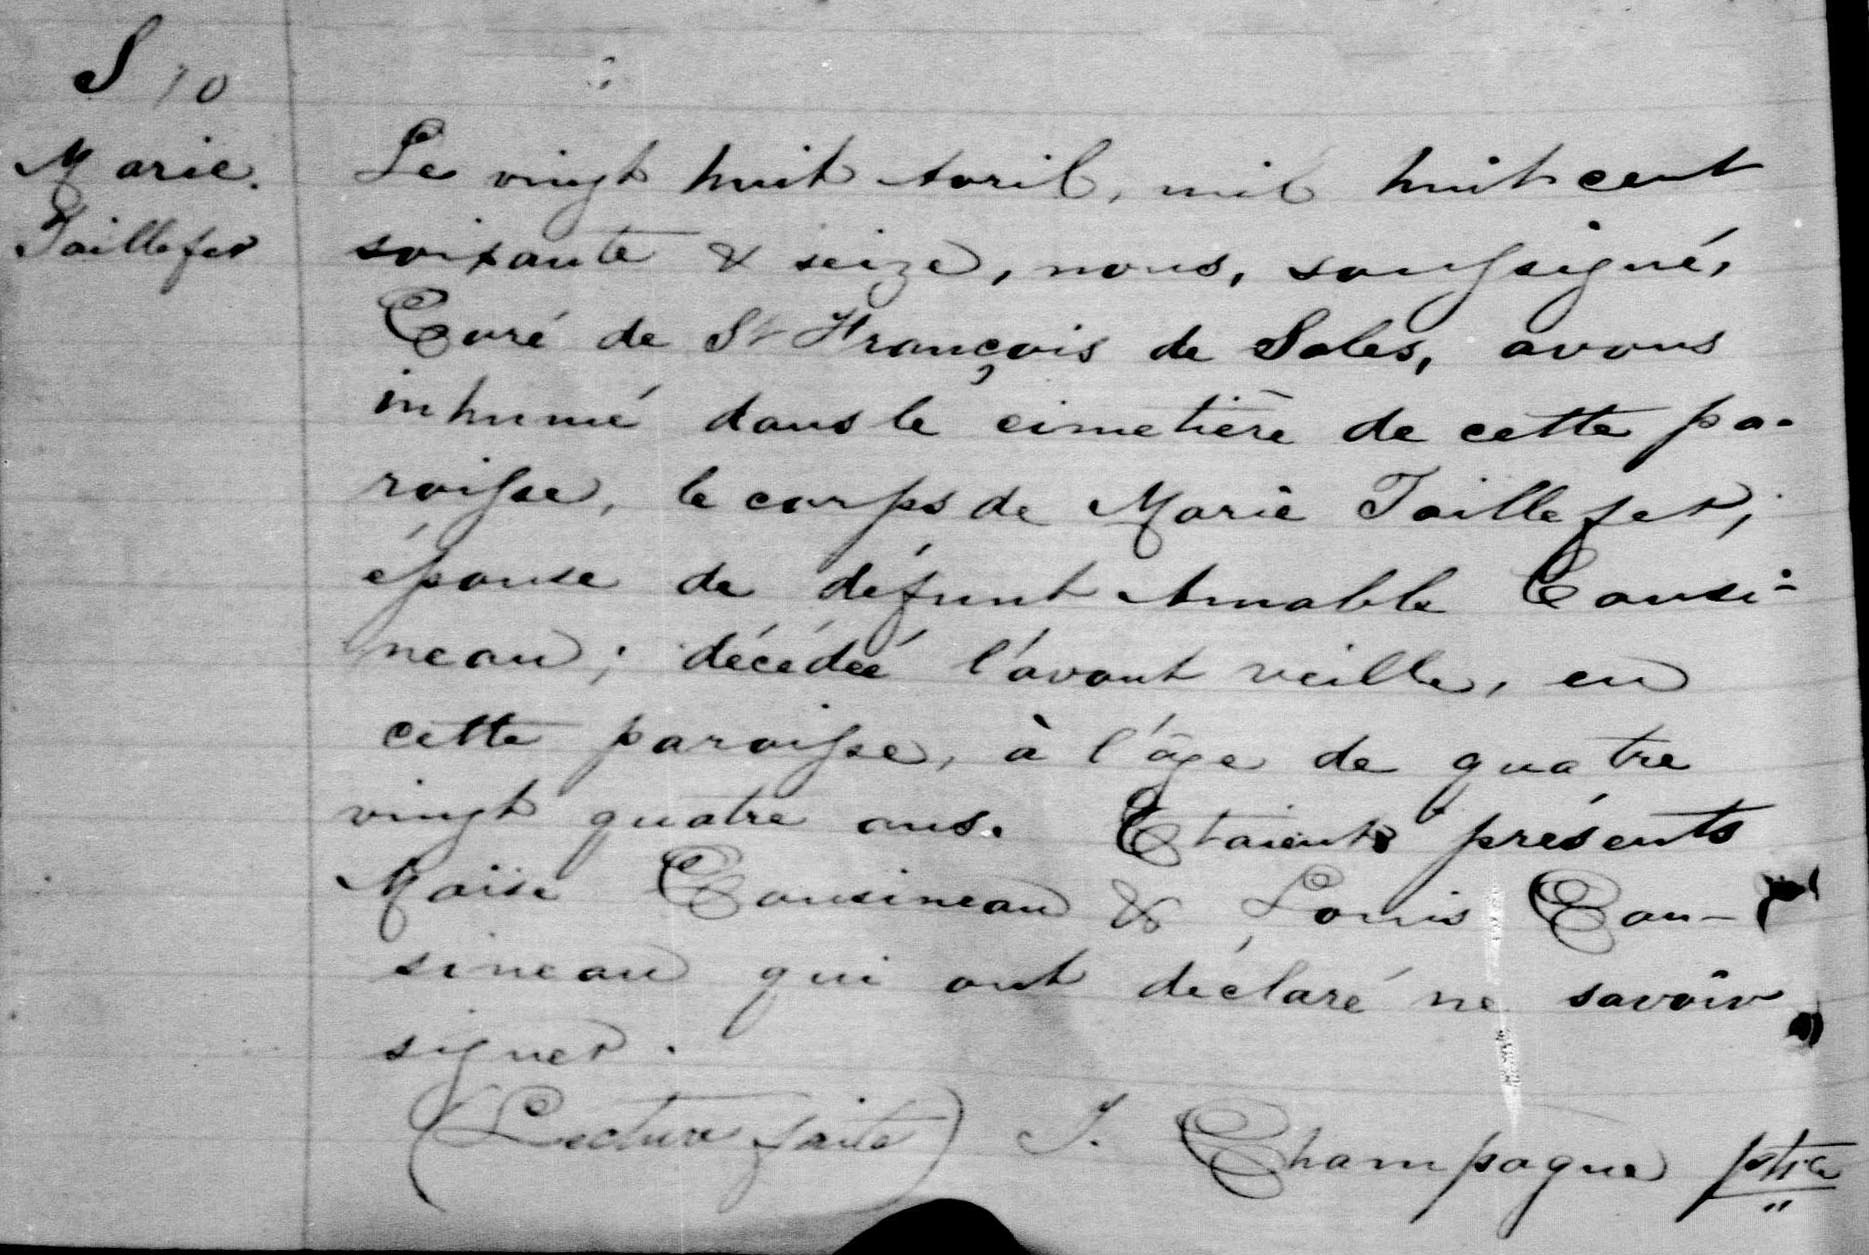 S 10
Marie.
Taillefer
Le vingt huit Avril, mil huit cent
soixante & seize, nous, soussigné,
Curé de St François de Sales, avons
inhumé dans le cimetière de cette pa-
roisse, le corps de Marie Taillefer,
épouse de défunt Amable Cousi-
neau; décédée l'avant veille, en
cette paroisse, à l'âge de quatre
vingt quatre ans. Etaient présents
Moïse Cousineau & Louis Cou-
sineau qui ont déclaré ne savoir
signer.
(Lecture faite) J. Champagne ptre